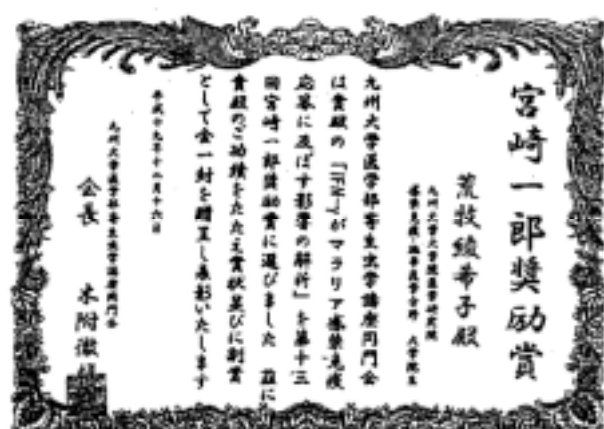 宮崎一郎奨励賞
九州大学大学院医学研究院
感染免疫・熱帯医学分野 大学院生
荒牧綾希子殿
九州大学医学部寄生虫学講座同門会
は貴殿の「IFN-γがマラリア感染免疫
応答に及ぼす影響の解析」を第十三
回宮崎一郎奨励賞に選びました 茲に
貴殿のご功績をたたえ賞状並びに副賞
として金一封を贈呈し表彰いたします
平成十九年十二月十六日
九州大学医学部寄生虫学講座同門会
会長 木附